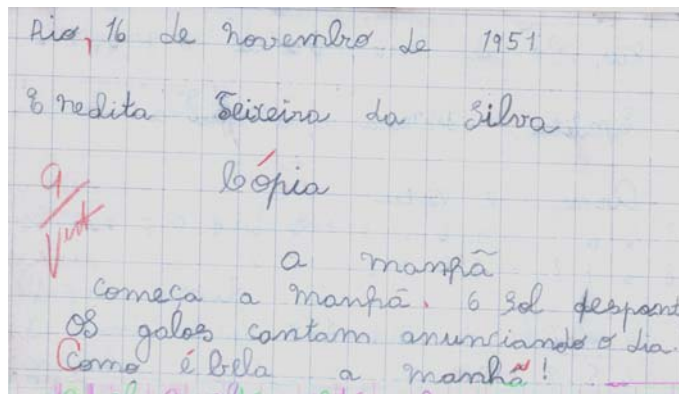 Rio, 16 de novembro de 1951
Enedita Teixeira da Silva
Cópia
9
a manhã
começa a manhã. O sol despont
Os galos cantam anunciando o dia.
Como é bela a manhã!